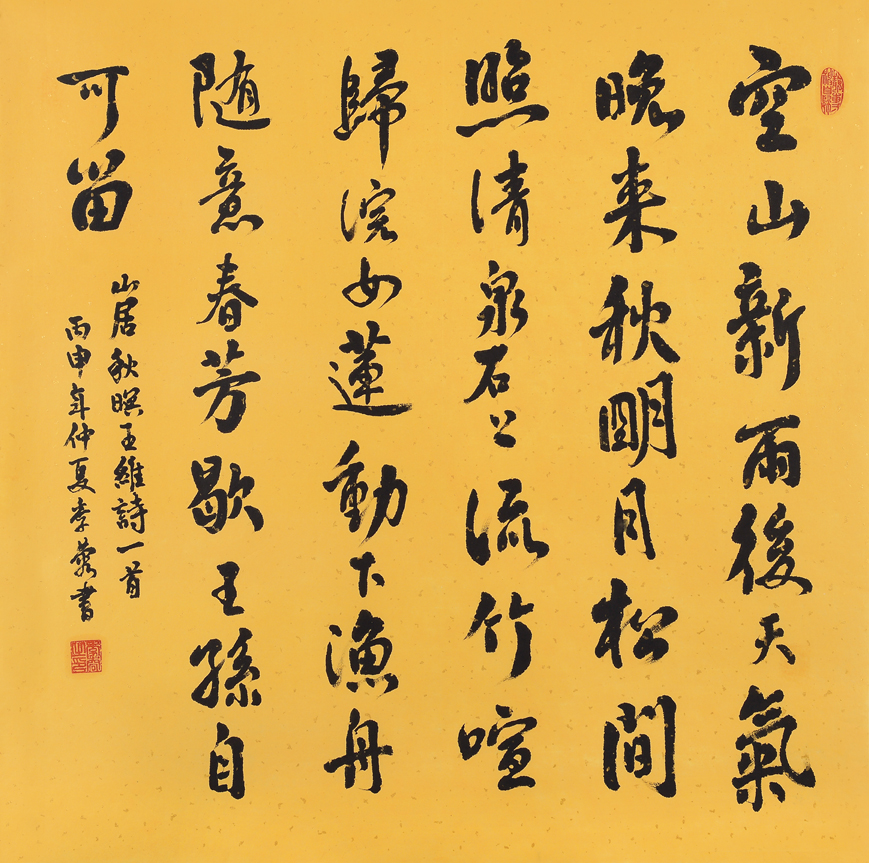 空山新雨後天氣
晚来秋明月松間
照清泉石上流竹喧
歸浣女蓮動下漁舟
随意春芳歇王孫自
可留
山居秋暝王維詩一首
丙申年仲夏李書